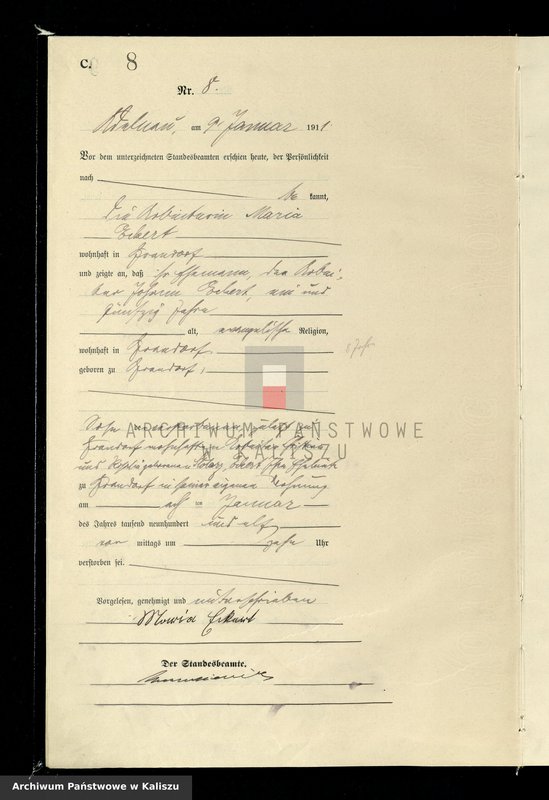 C.
8
Nr. 8.
Adelnau, am 9. Januar 1911
Vor dem unterzeichneten Standesbeamten erschien heute, der Persönlichkeit
nach
be kannt,
die Arbeiterin Maria
Eckert
wohnhaft in Grandorf
und zeigte an, daß ihr Ehemann, der Arbei-
ter Johann Eckert, ein und
fünfzig Jahre
alt, evangelische Religion,
wohnhaft in Grandorf,
geboren zu Grandorf,
Sohn
Grandorf
und geborene
zu Grandorf in seiner eigenen Wohnung
am acht ten Januar
des Jahres tausend neunhundert und elf
vor mittags um zehn Uhr
verstorben sei.
Vorgelesen, genehmigt und unterschrieben
Maria Eckert
Der Standesbeamte.
ARCHIWUM PAŃSTWOWE
W KALISZU
Archiwum Państwowe w Kaliszu